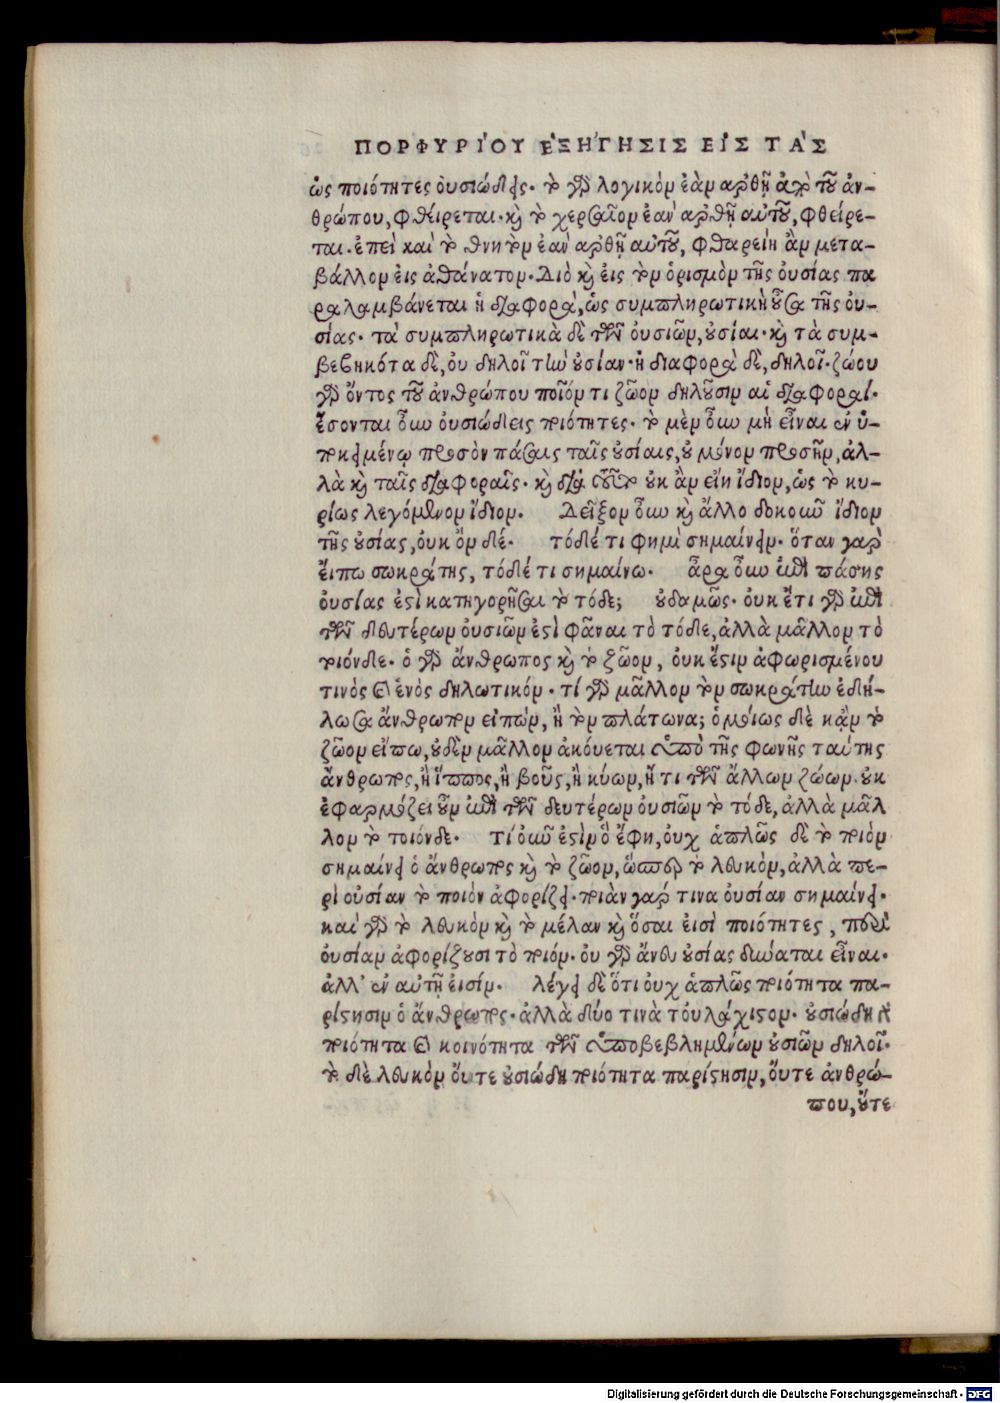 ΠΟΡΦΥΡΙ´ΟΥ ΕΞΗ´ΓΗΣΙΣ ΕΙΣ ΤΑ`Σ
ὡς ποιότητες οὐσιώδεις. τὸ γὰρ λογικὸν ἐὰν ἀρθῇ ἀπὸ τοῦ ἀν-
θρώπου, φθείρεται. καὶ τὸ χερσαῖον ἐὰν ἀρθῇ αὐτοῦ, φθείρε-
ται. ἐπεὶ καὶ τὸ θνητὸν ἐὰν ἀρθῇ αὐτοῦ, φθαρείη ἂν μετα-
βάλλον εἰς ἀθάνατον. Διὸ καὶ εἰς τὸν ὁρισμὸν τῆς οὐσίας πα
ραλαμβάνεται ἡ διαφορὰ, ὡς συμπληρωτικὴ οὖσα τῆς οὐ-
σίας. τὰ συμπληρωτικὰ δὲ τῶν οὐσιῶν, οὐσίαι. καὶ τὰ συμ-
βεβηκότα δὲ, οὐ δηλοῖ τὴν οὐσίαν. ἡ διαφορὰ δὲ, δηλοῖ. ζώου
γὰρ ὄντος τοῦ ἀνθρώπου ποῖόν τι ζῶον δηλοῦσιν αἱ διαφοραί.
ἔσονται οὖν οὐσιώδεις ποιότητες. τὸ μὲν οὖν μὴ εἶναι ἐν ὑ-
ποκειμένῳ προσὸν πάσαις ταῖς οὐσίαις, οὐ μόνον προσῆν, ἀλ-
λὰ καὶ ταῖς διαφοραῖς. καὶ διὰ τοῦτο οὐκ ἂν εἴη ἴδιον, ὡς τὸ κυ-
ρίως λεγόμενον ἴδιον. Δεῖξον οὖν καὶ ἄλλο δοκοῦν ἴδιον
τῆς οὐσίας, οὐκ ὂν δέ. τόδέ τι φημὶ σημαίνειν. ὅταν γὰρ
εἴπω σωκράτης, τόδέ τι σημαίνω. ἆρα οὖν ἐπὶ πάσης
οὐσίας ἐστὶ κατηγορῆσαι τὸ τόδε; οὐδαμῶς. οὐκ ἔτι γὰρ ἐπὶ
τῶν δευτέρων οὐσιῶν ἐστὶ φᾶναι τὸ τόδε, ἀλλὰ μᾶλλον τὸ
τοιόνδε. ὁ γὰρ ἄνθρωπος καὶ τὸ ζῶον, οὐκ ἔστιν ἀφωρισμένου
τινὸς καὶ ἑνὸς δηλωτικόν. τί γὰρ μᾶλλον τὸν σωκράτην ἐδή-
λωσα ἄνθρωπον εἰπὼν, ἢ τὸν πλάτωνα; ὁμοίως δὲ κἂν τὸ
ζῶον εἴπω, οὐδὲν μᾶλλον ἀκούεται ὑπὸ τῆς φωνῆς ταύτης
ἄνθρωπος, ἢ ἵππος, ἢ βοῦς, ἢ κύων, ἤ τι τῶν ἄλλων ζώων. οὐκ
ἐφαρμόζει οὖν ἐπὶ τῶν δευτέρων οὐσιῶν τὸ τόδε, ἀλλὰ μᾶλ
λον τὸ τοιόνδε. τί οὖν ἐστὶν ὃ ἔφη, οὐχ ἁπλῶς δὲ τὸ ποιὸν
σημαίνει ὁ ἄνθρωπος καὶ τὸ ζῶον, ὥσπερ τὸ λευκὸν, ἀλλὰ πε-
ρὶ οὐσίαν τὸ ποιὸν ἀφορίζει. ποιὰν γάρ τινα οὐσίαν σημαίνει.
καὶ γὰρ τὸ λευκὸν καὶ τὸ μέλαν καὶ ὅσαι εἰσὶ ποιότητες, περὶ
οὐσίαν ἀφορίζουσι τὸ ποιόν. οὐ γὰρ ἄνευ οὐσίας δύναται εἶναι.
ἀλλ' ἐν αὐτῇ εἰσίν. λέγει δὲ ὅτι οὐχ ἁπλῶς ποιότητα πα-
ρίστησιν ὁ ἄνθρωπος. ἀλλὰ δύο τινὰ τοὐλάχιστον. οὐσιώδη
ποιότητα καὶ κοινότητα τῶν ὑποβεβλημένων οὐσιῶν δηλοῖ.
τὸ δὲ λευκὸν οὔτε οὐσιώδη ποιότητα παρίστησιν, οὔτε ἀνθρώ-
που, οὔτε
Digitalisierung gefördert durch die Deutsche Forschungsgemeinschaft - DFG